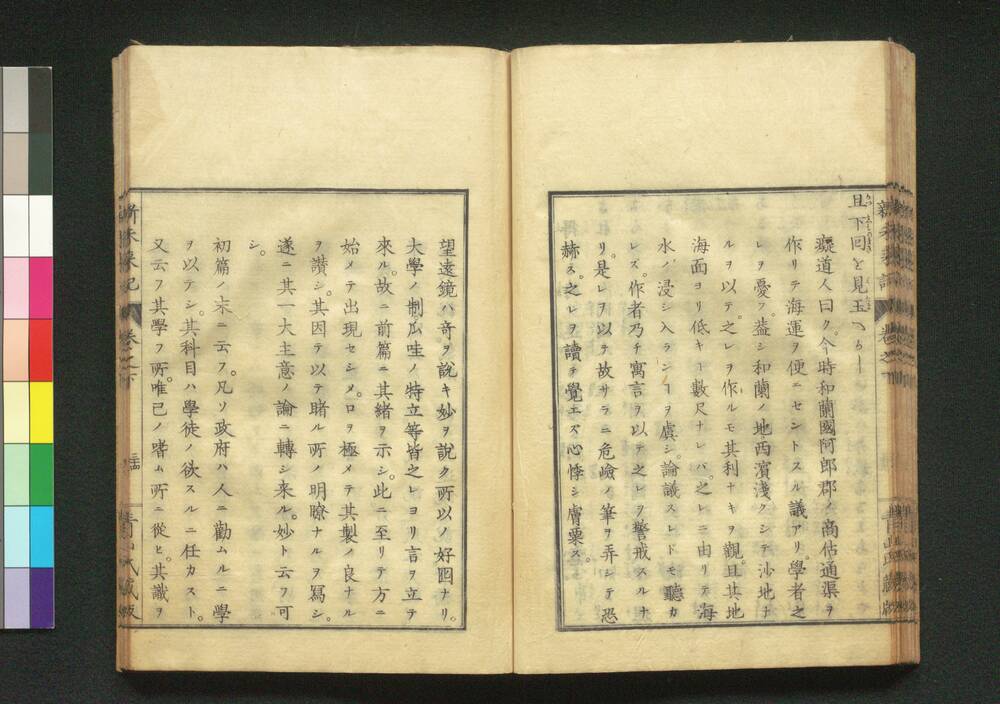 且下回を見玉へかし
礙道人曰ク。今時和蘭國阿郎郡ノ商估通渠ヲ
作リテ海運ヲ便ニセントスル議アリ。學者之
レヲ憂フ。蓋シ和蘭ノ地。西濱淺クシテ沙地ナ
ルヲ以テ。之レヲ作ルモ其利ナキヲ觀。且其地
海面ヨリ低キヿ數尺ナレバ。之レニ由リテ海
水ノ浸シ入ランヿヲ虞シ。論議スレドモ聽カ
レズ。作者乃チ寓言ヲ以テ之レヲ警戒スルナ
リ。是レヲ以テ故サラニ危險ノ筆ヲ弄シテ恐
赫ス。之レヲ讀テ覺エズ心悸シ膚粟ス。
望遠鏡ハ奇ヲ説キ妙ヲ説ク所以ノ好囮ナリ。
大學ノ制瓜哇ノ特立等皆之レヨリ言ヲ立テ
來ル。故ニ前篇ニ其緒ヲ示シ。此ニ至リテ方ニ
始メテ出現セシメ。口ヲ極メテ其製ノ良ナル
ヲ讃シ。其因テ以テ睹ル所ノ明瞭ナルヲ寫シ。
遂ニ其一大主意ノ論ニ轉シ來ル。妙ト云フ可
シ。
初篇ノ末ニ云フ。凡ソ政府ハ人ニ勸ムルニ學
ヲ以テシ。其科目ハ學徒ノ欲スルニ任カスト。
又云フ其學フ所。唯己ノ嗜ム所ニ從ヒ。其識ヲ
新未來記
卷之下
青山氏藏版